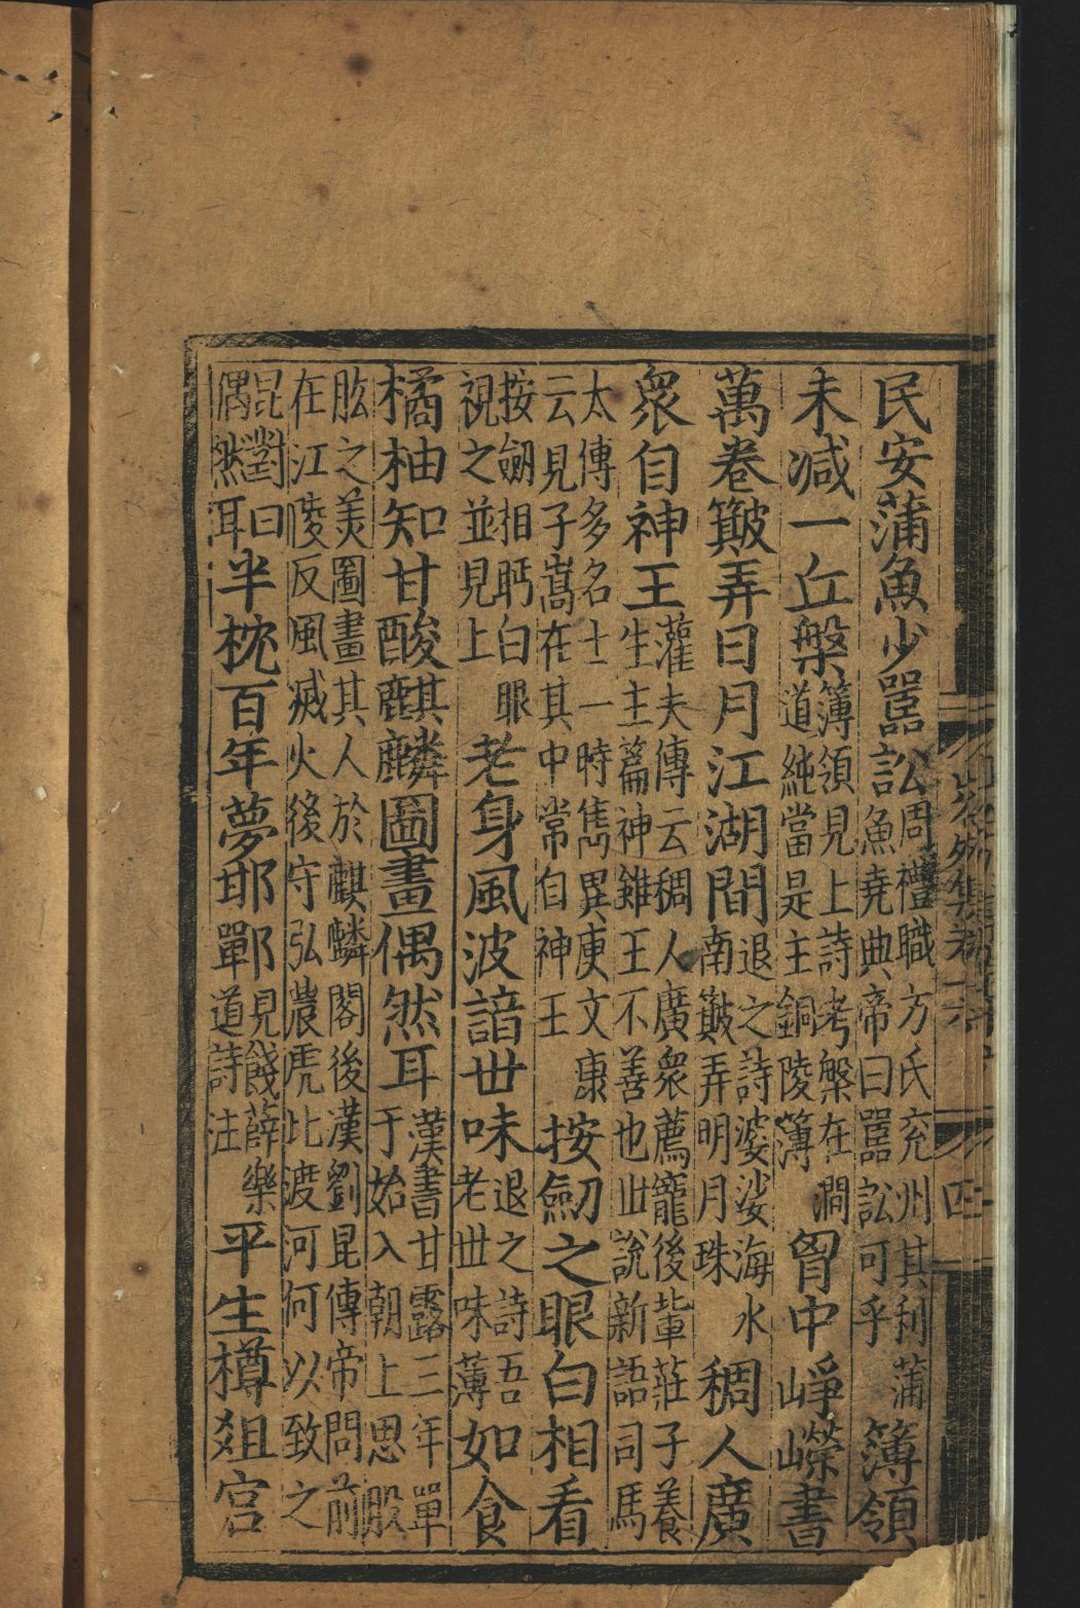 民安蒲魚少嚚訟周禮職方氏兖州其利蒲魚堯典帝曰嚚訟可乎簿領
未减一丘槃簿領見上詩考槃在澗道純當是主銅陵簿胷中崢嶸書
萬卷簸弄日月江湖間退之詩婆娑海水南簸弄明月珠稠人廣
衆自神王灌夫傳云稠人廣衆薦寵後軰莊子養生主篇神雖王不善也世說新語司馬
太傅多名士一時雋異庾文康云見子嵩在其中常自神王按劒之眼白相看
按劒相眄白眼視之並見上老身風波諳世味退之詩吾老世味薄如食
橘柚知甘酸麒麟圖畫偶然耳漢書甘露三年單于始入朝上思股
肱之美圖畫其人於麒麟閣後漢劉昆傳帝問前在江陵反風滅火後守弘農虎比渡河何以致之
昆對曰偶然耳半枕百年夢邯鄲見餞薛樂道詩注平生樽俎宫